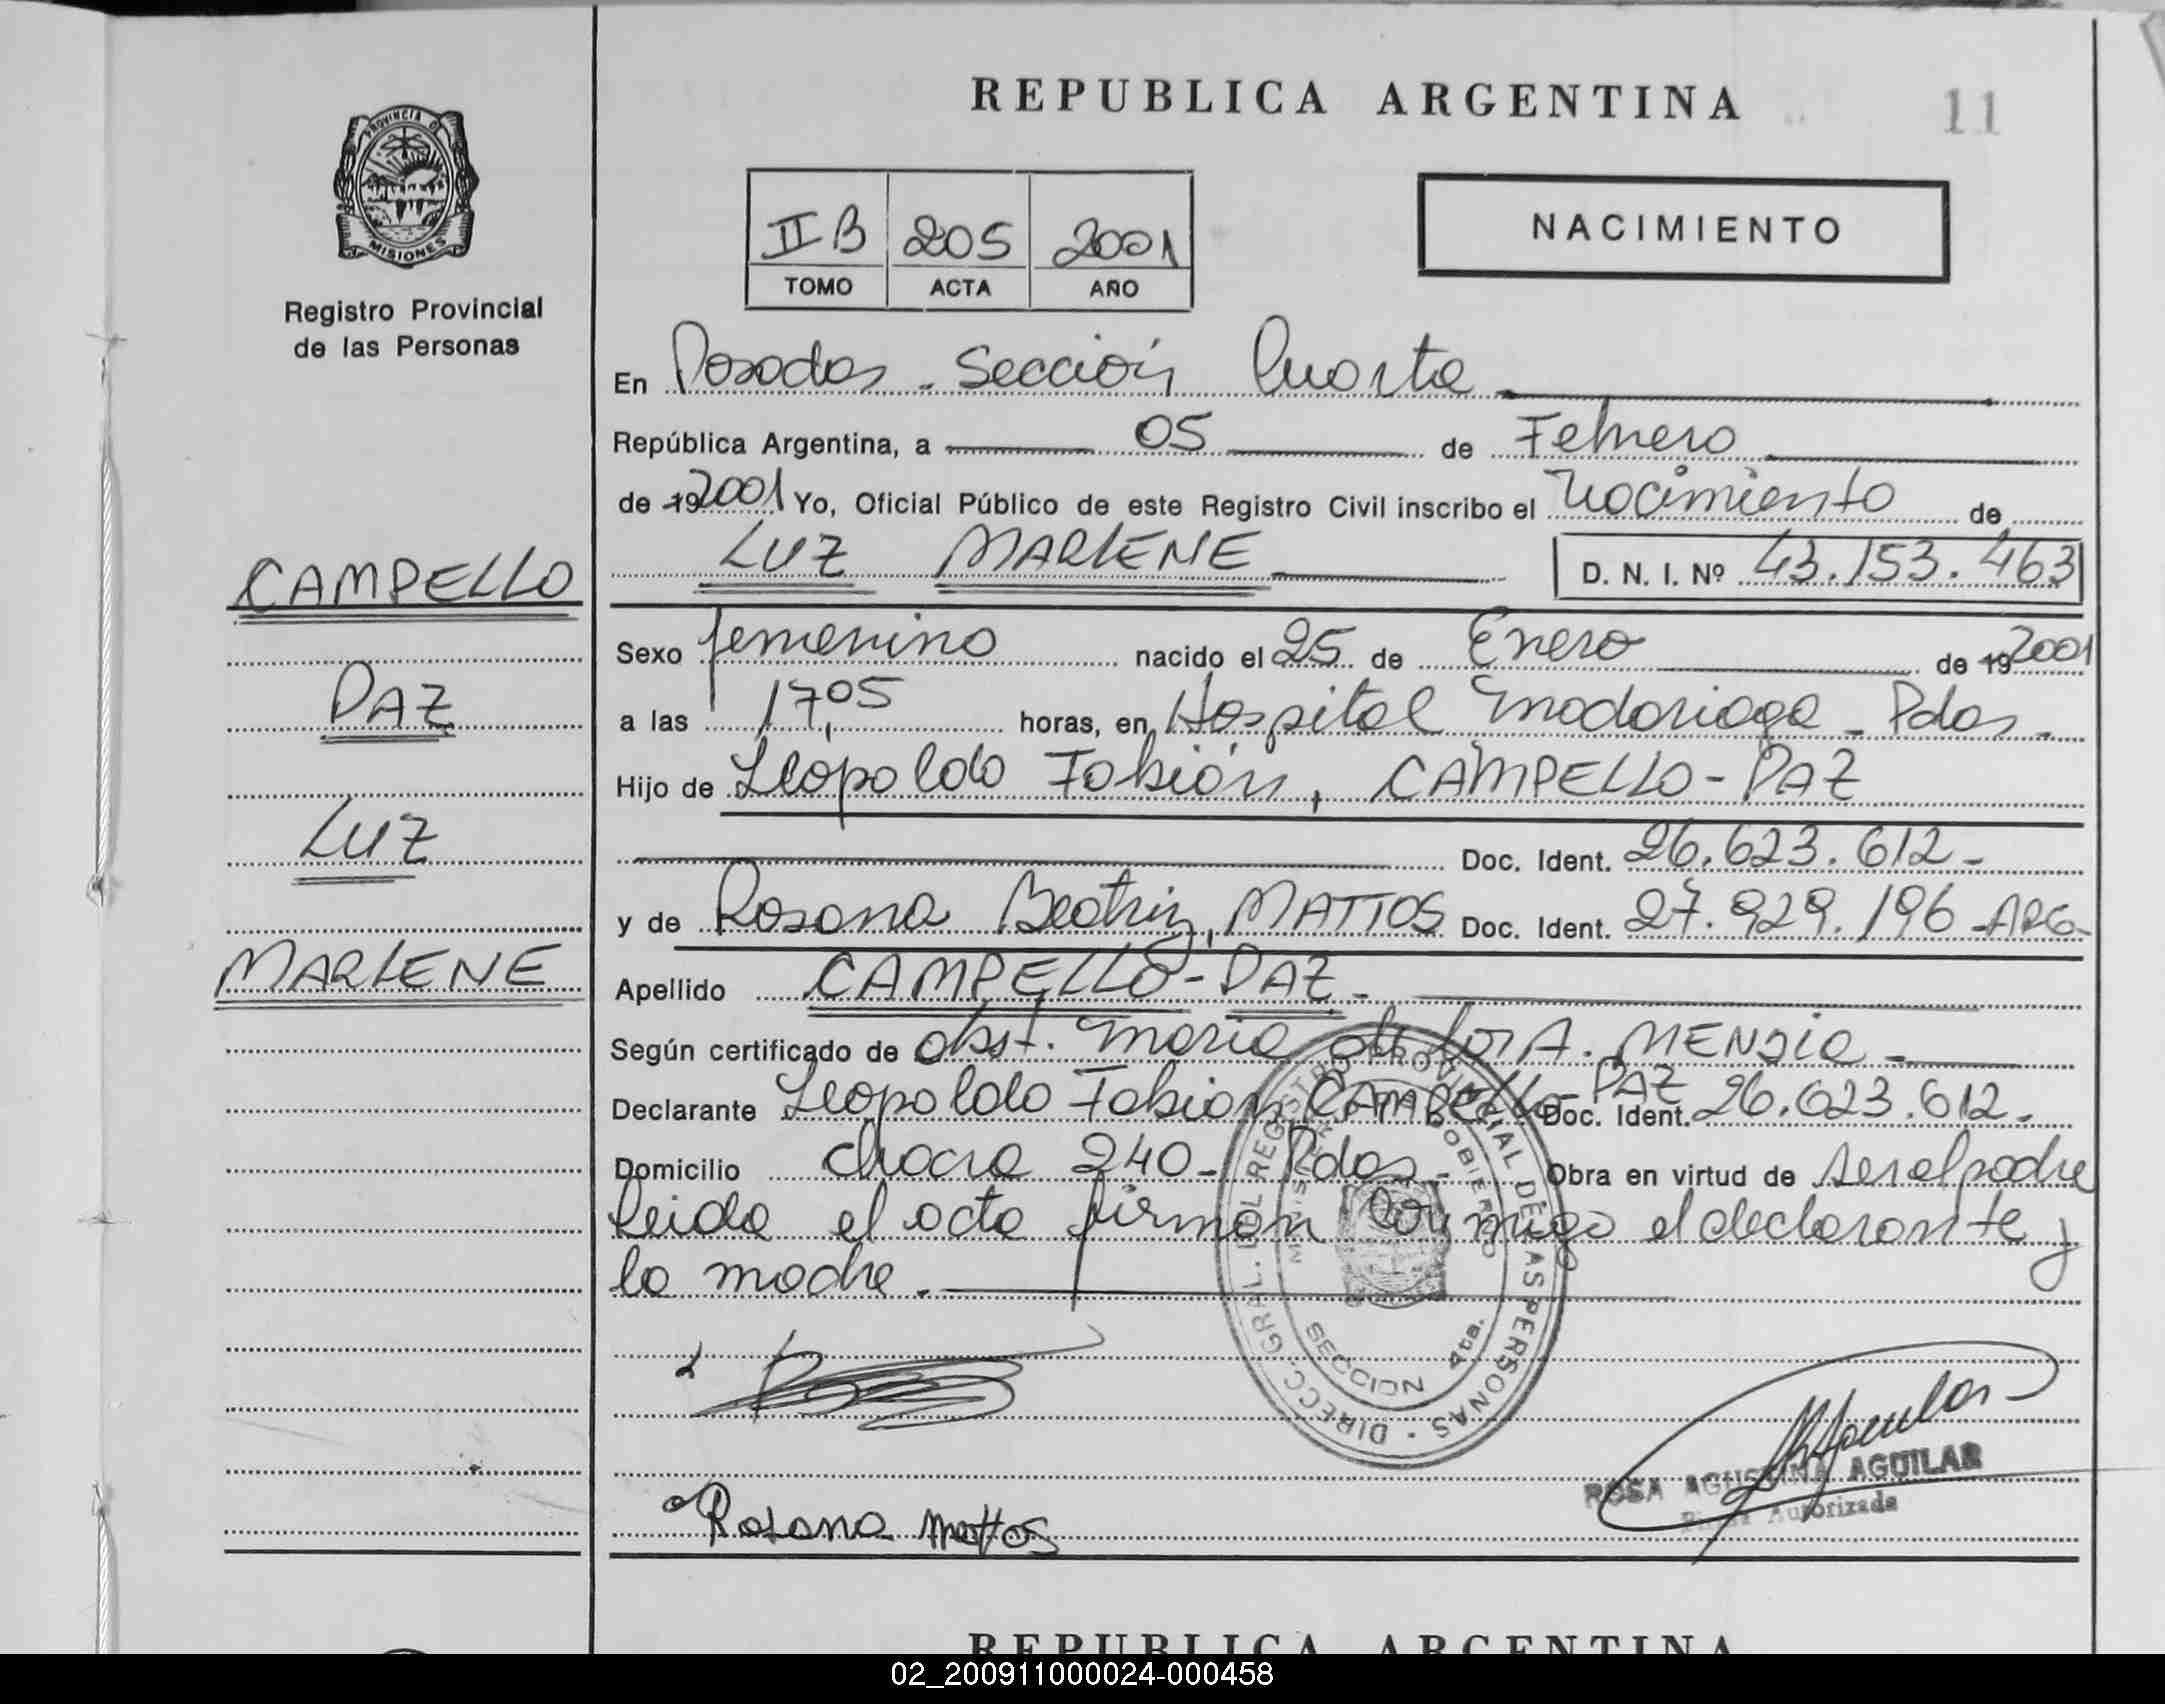 REPUBLICA ARGENTINA
11
PROVINCIA DE
MISIONES
Registro Provincial
de las Personas
II B 205 2001
TOMO ACTA AÑO
NACIMIENTO
En Posadas - Sección Cuarta
República Argentina, a 05 de Febrero
de 19 2001 Yo, Oficial Público de este Registro Civil inscribo el Nacimiento de
LUZ MARLENE D. N. I. Nº 43.153.463
CAMPELLO
PAZ
LUZ
MARLENE
Sexo femenino nacido el 25 de Enero de 19 2001
a las 17,05 horas, en Hospital Madariaga - Pdas.
Hijo de Leopoldo Fabián, CAMPELLO - PAZ
Doc. Ident. 26.623.612-
y de Rosana Beatriz, MATTOS Doc. Ident. 27.929.196 - ARG-
Apellido CAMPELLO - PAZ -
Según certificado de obst. Maria de los A. MENSIA -
Declarante Leopoldo Fabian CAMPELLO - PAZ Doc. Ident. 26.623.612.
Domicilio chacra 240 - Pdas - Obra en virtud de ser el padre
leida el acta firman conmigo el declarante y
la madre.
DIRECC. GRAL. DEL REGISTRO PROVINCIAL DE LAS PERSONAS
MINISTERIO GOBIERNO
SECCION 4ta.
Rosana Mattos
ROSA AGUSTINA AGUILAR
Firma Autorizada
REPUBLICA ARGENTINA
02_200911000024-000458